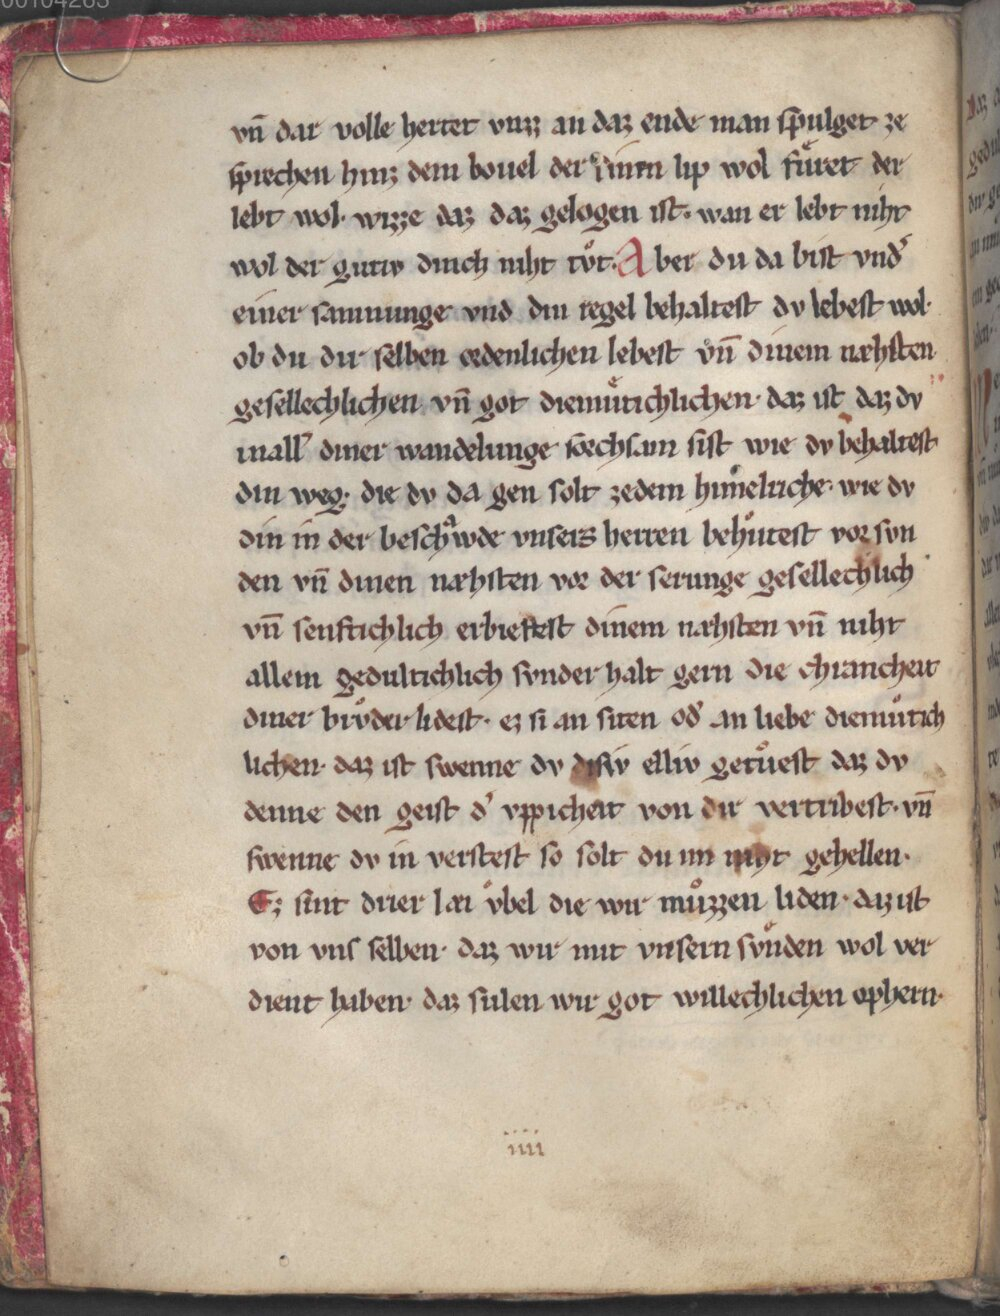 vn̄ dar volle hertet vnzz an daz ende man spulget ze
sprechen hinz dem bouel der sinen lip wol fuͤ̂ret der
lebt wol· wizze daz daz gelogen ist· wan er lebt niht
wol der gutiv dinch niht tv̊t· Aber du da bist vnd̾
einer samnunge vnd din regel behaltest dv lebest wol·
ob du dir selben ordenlichen lebest vn̄ dinem næhsten
gesellechlichen vn̄ got diemuͤtichlichen· daz ist daz dv
inall̾ diner wandelunge sorchsam sist wie dv behaltest
din weg· die dv da gen solt zedem himelriche· wie dv
din in der beschaͮwde vnsers herren behuͤtest vor svn
den vn̄ dinen næhsten vor der serunge gesellechlich
vn̄ senftichlich erbietest dinem næhsten vn̄ niht
allein gedultichlich svnder halt gern die chrancheit
diner brv̊der lidest· ez si an siten od̾ an liebe diemuͤtich
lichen· daz ist swenne dv disiv elliv getuͤest daz dv
denne den geist d̾ vppicheit von dir vertribest· vn̄
swenne dv in verstest so solt du im niht gehellen·
Ez sint drier læi v̊bel die wir muͤzzen liden· daz ist
von vns selben· daz wir mit vnsern svͤnden wol ver
dient haben· daz sulen wir got willechlichen ophern·
iiii